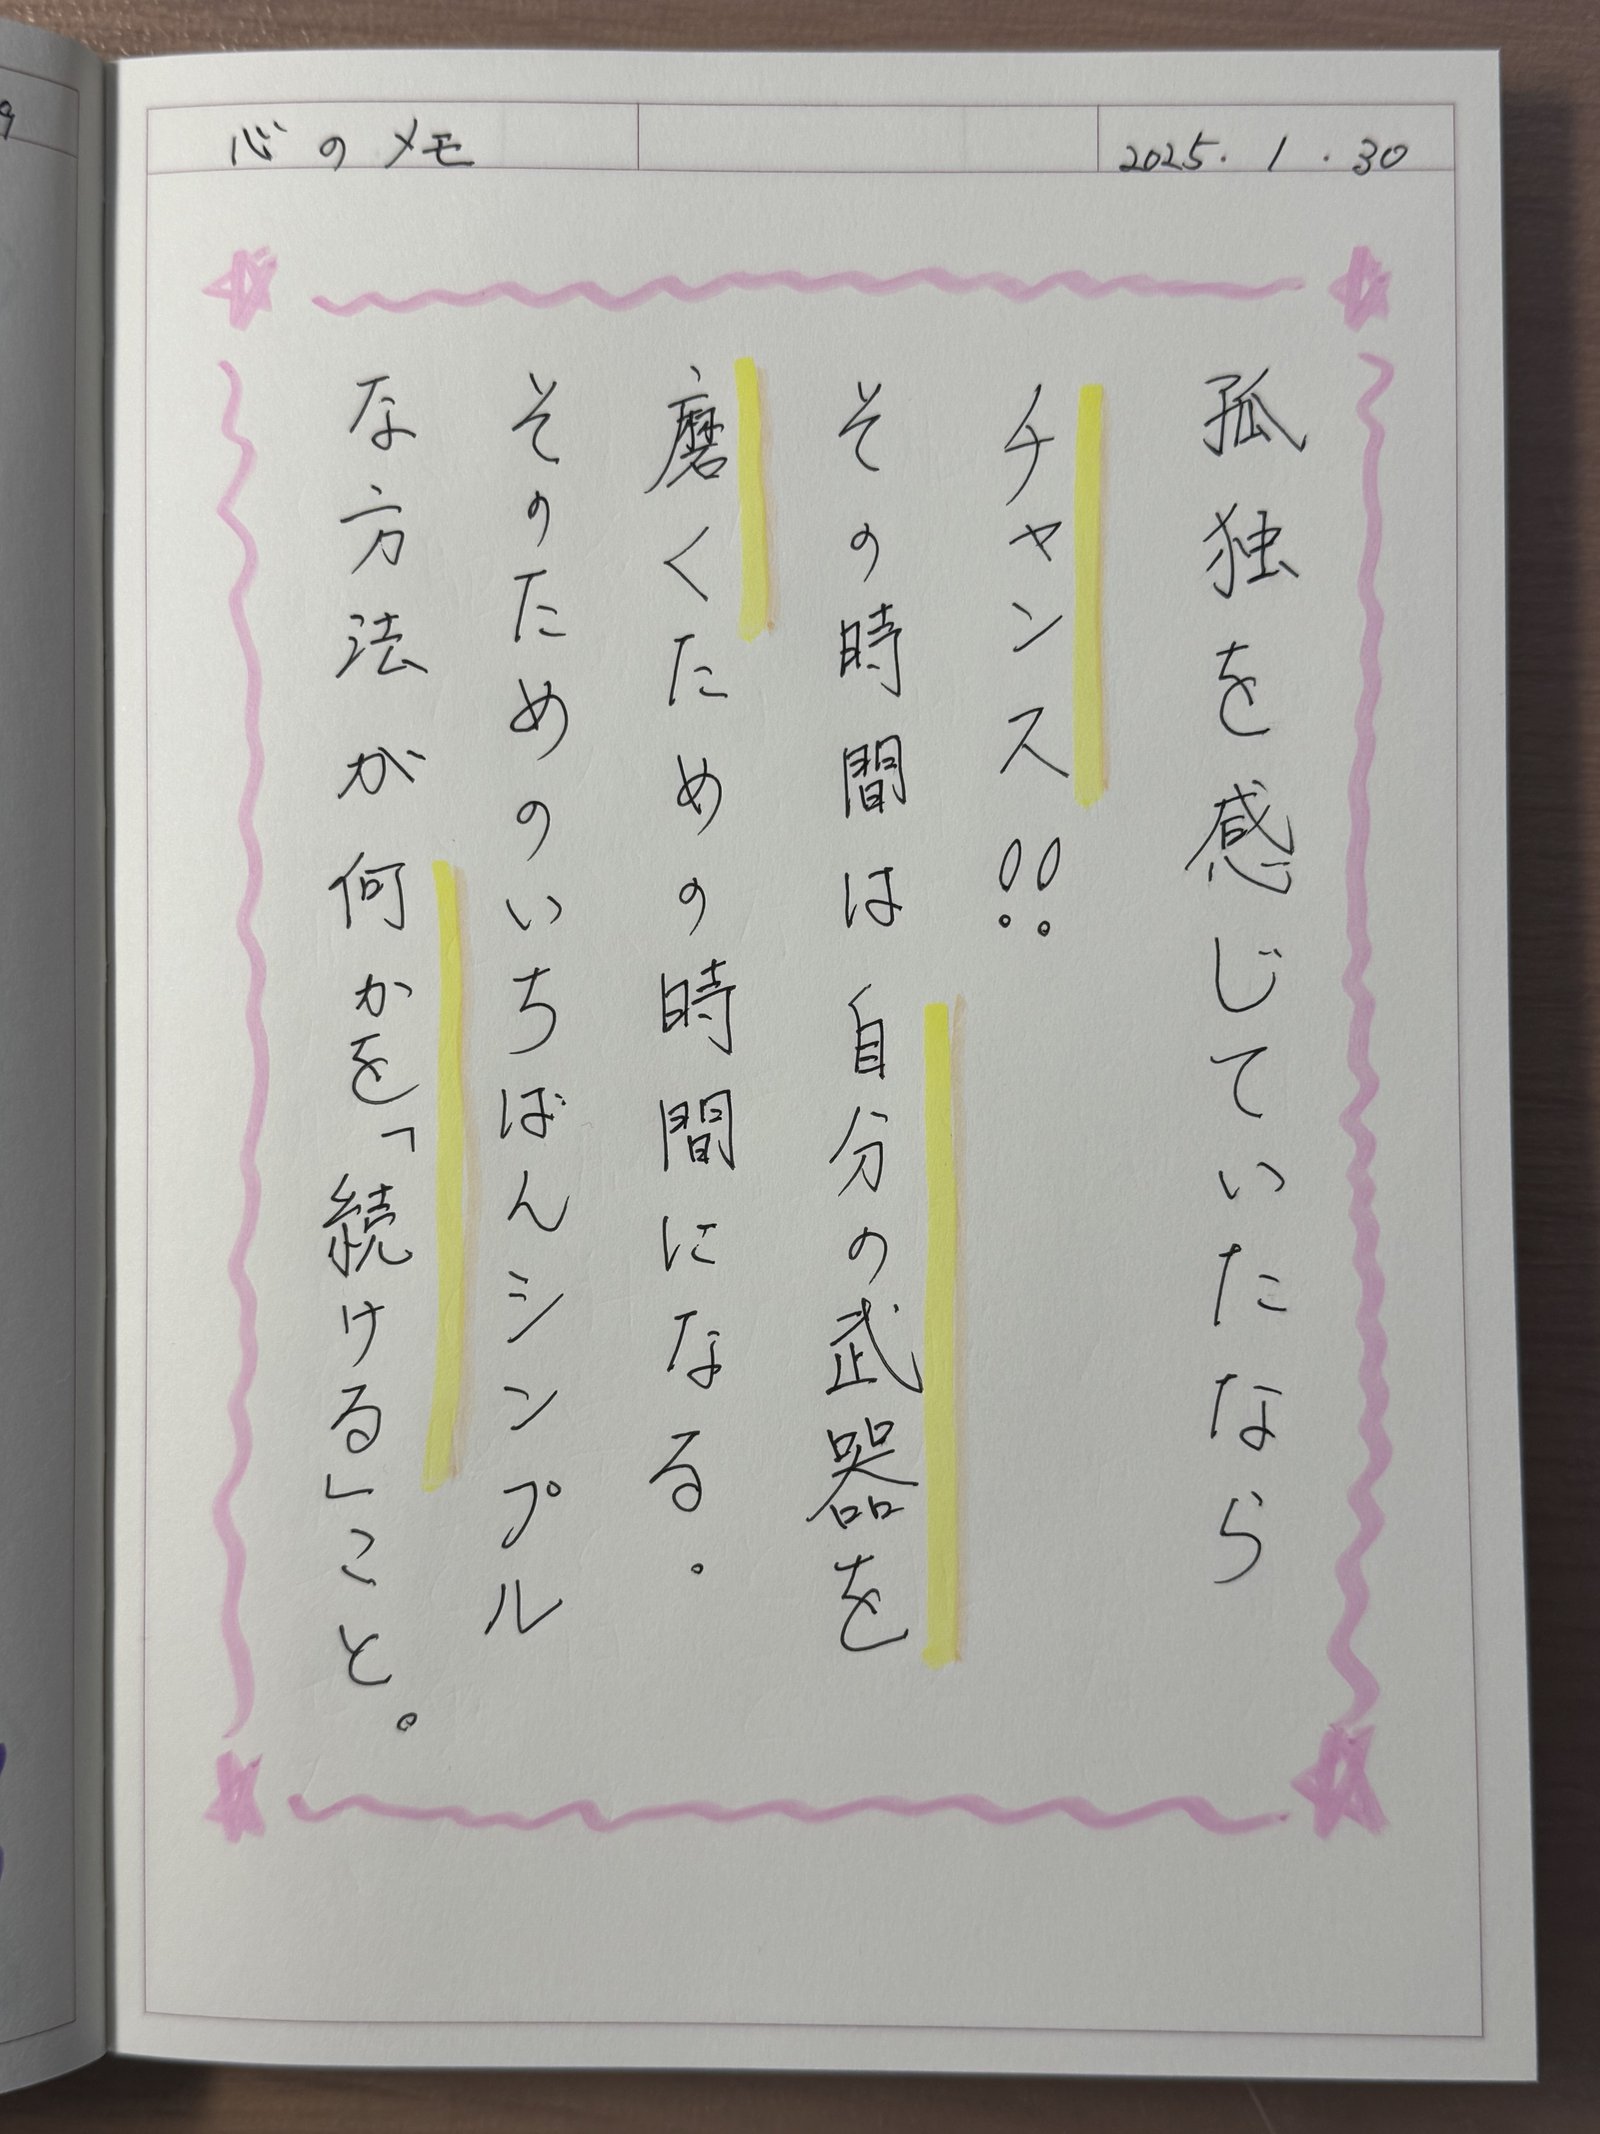 心のメモ
2025.1.30
孤独を感じていたなら
チャンス!!
その時間は自分の武器を
磨くための時間になる。
そのためのいちばんシンプル
な方法が何かを「続ける」こと。